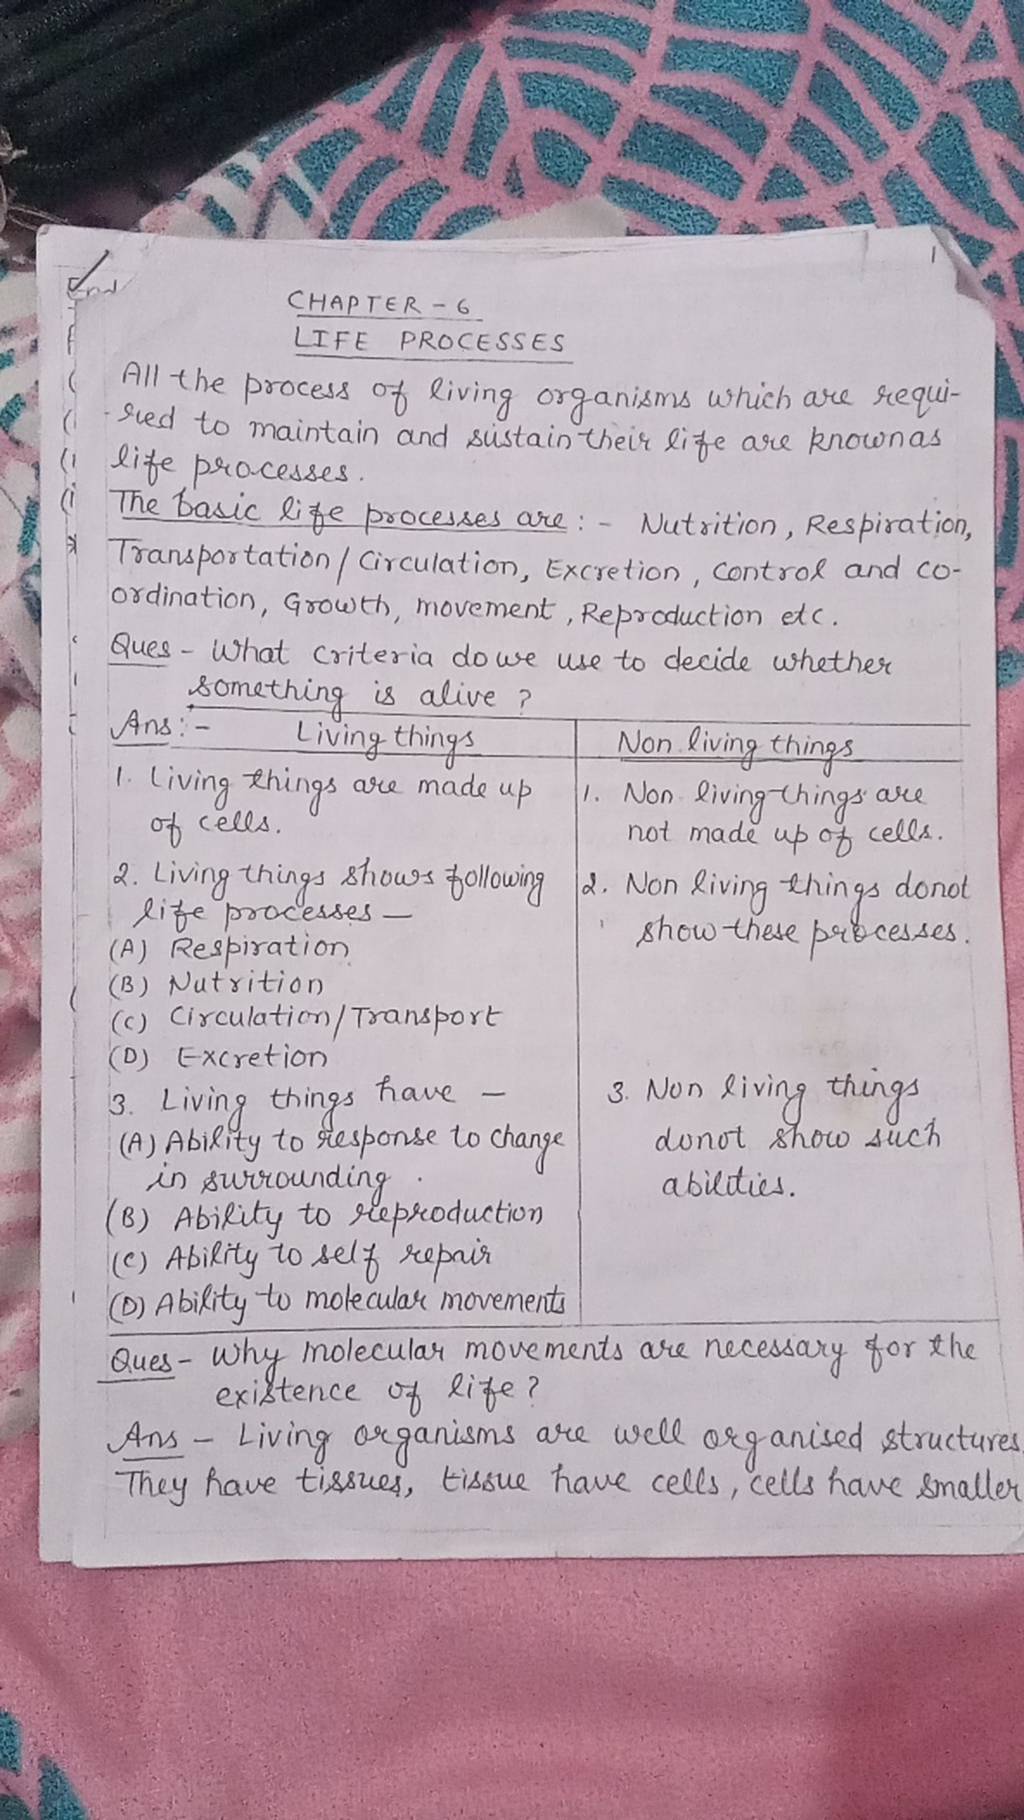 1
End
CHAPTER - 6
LIFE PROCESSES
All the process of living organisms which are requi-
-red to maintain and sustain their life are known as
life processes.
The basic life processes are : - Nutrition, Respiration,
Transportation / Circulation, Excretion, control and co-
ordination, Growth, movement, Reproduction etc.
Ques - What criteria do we use to decide whether
something is alive ?
Ans :- Living things Non living things
1. Living things are made up 1. Non living things are
of cells. not made up of cells.
2. Living things shows following 2. Non living things donot
life processes — show these processes.
(A) Respiration
(B) Nutrition
(C) Circulation/Transport
(D) Excretion
3. Living things have — 3. Non living things
(A) Ability to response to change donot show such
in surrounding. abilities.
(B) Ability to reproduction
(C) Ability to self repair
(D) Ability to molecular movements
Ques - Why molecular movements are necessary for the
existence of life ?
Ans - Living organisms are well organised structures.
They have tissues, tissue have cells, cells have smaller